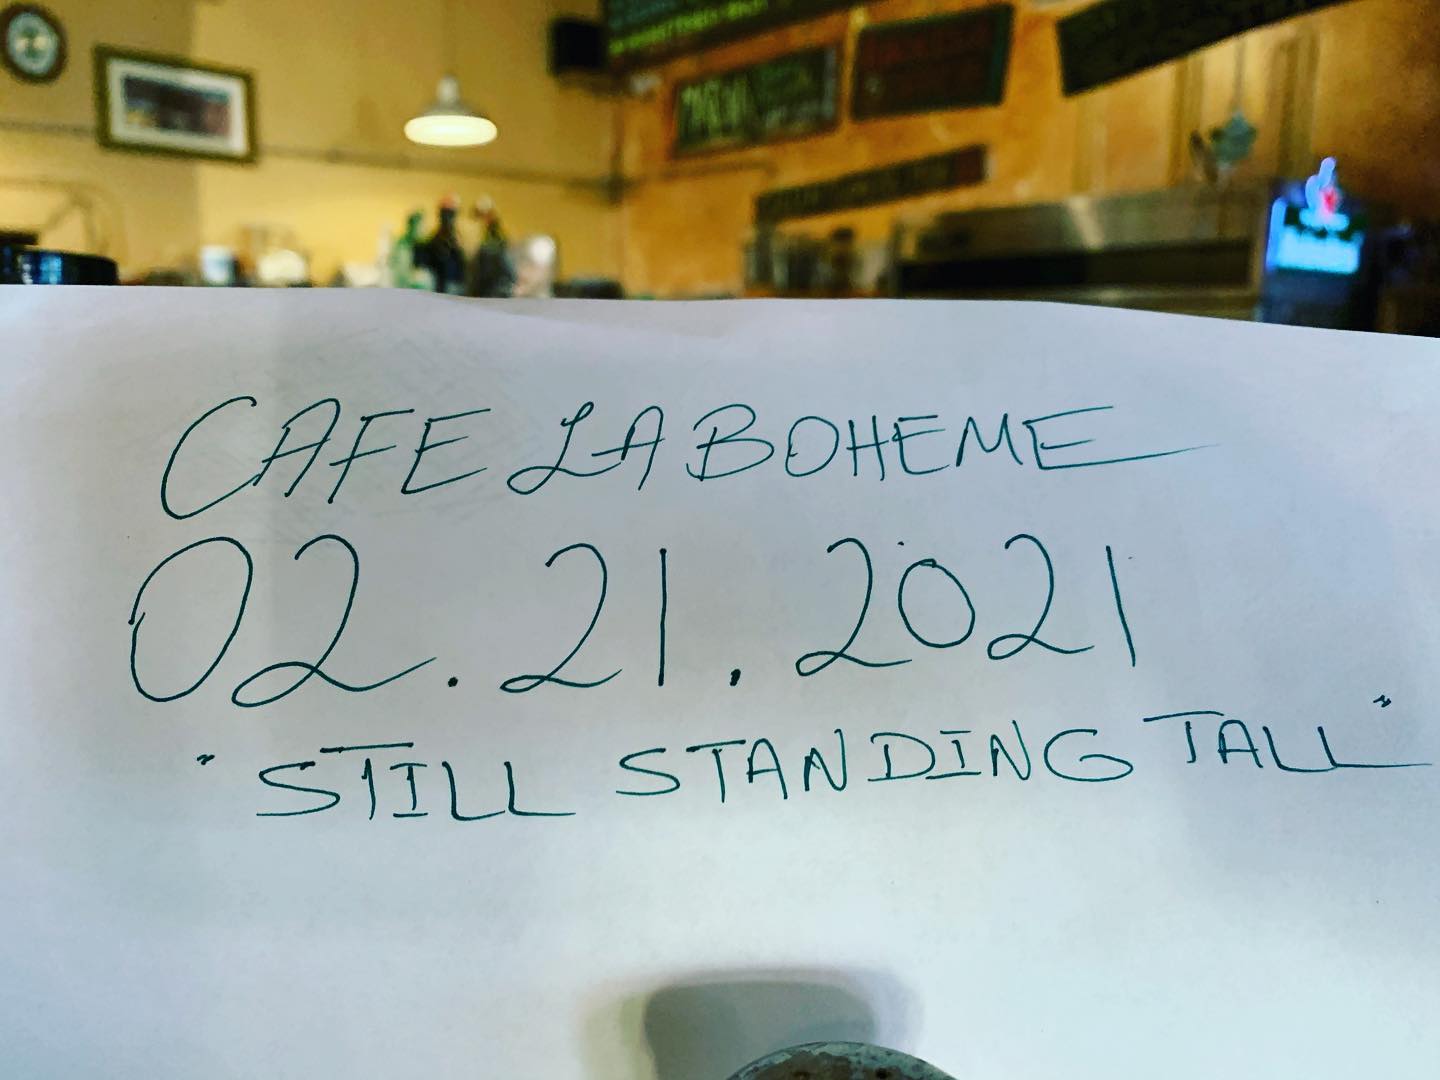 CAFE LA BOHEME
02.21.2021
"STILL STANDING TALL"